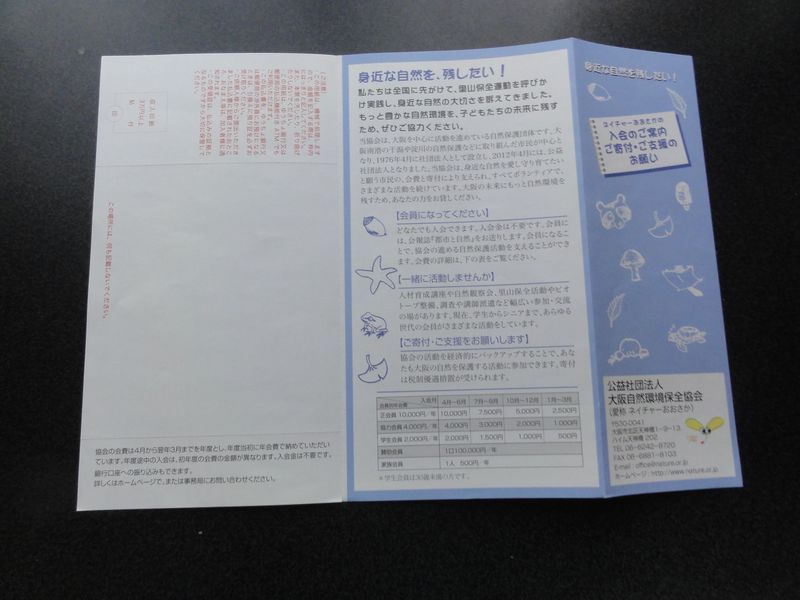 身近な自然を、残したい!
私たちは全国に先がけて、里山保全運動を呼びか
け実践し、身近な自然の大切さを訴えてきました。
もっと豊かな自然環境を、子どもたちの未来に残す
ため、ぜひご協力ください。
当協会は、大阪を中心に活動を進めている自然保護団体です。大
阪南港の干潟や淀川の自然保護などに取り組んだ市民が中心と
なり、1976年4月に社団法人として設立し、2012年4月には、公益
社団法人となりました。当協会は、身近な自然を愛し守り育てたい
と願う市民の、会費と寄付により支えられ、すべてボランティアで、
さまざまな活動を続けています。大阪の未来にもっと自然環境を
残すため、あなたの力をお貸しください。
【会員になってください】
どなたでも入会できます。入会金は不要です。会員に
は、会報誌『都市と自然』をお送りします。会員になるこ
とで、協会の進める自然保護活動を支えることができ
ます。会費の詳細は、下の表をご覧ください。
【一緒に活動しませんか】
人材育成講座や自然観察会、里山保全活動やビオ
トープ整備、調査や講師派遣など幅広い参加・交流
の場があります。現在、学生からシニアまで、あらゆる
世代の会員がさまざまな活動をしています。
【ご寄付・ご支援をお願いします】
協会の活動を経済的にバックアップすることで、あな
たも大阪の自然を保護する活動に参加できます。寄付
は税制優遇措置が受けられます。
入会月 4月~6月 7月~9月 10月~12月 1月~3月
会員別年会費
正会員 10,000円/年 10,000円 7,500円 5,000円 2,500円
協力会員 4,000円/年 4,000円 3,000円 2,000円 1,000円
学生会員 2,000円/年 2,000円 1,500円 1,000円 500円
賛助会員 1口100,000円/年
家族会員 1人 500円/年
*学生会員は30歳未満の方です。
身近な自然を残したい!
ネイチャーおおさかの
入会のご案内
ご寄付・ご支援の
お願い
公益社団法人
大阪自然環境保全協会
(愛称 ネイチャーおおさか)
〒530-0041
大阪市北区天神橋1-9-13
ハイム天神橋 202
TEL 06-6242-8720
FAX 06-6881-8103
E-mail : office@nature.or.jp
ホームページ : http://www.nature.or.jp
この場所には、何も記載しないでください。
協会の会費は4月から翌年3月までを年度とし、年度当初に年会費で納めていただい
ています。年度途中の入会は、初年度の会費の金額が異なります。入会金は不要です。
銀行口座への振り込みもできます。
詳しくはホームページで、または事務局にお問い合わせください。